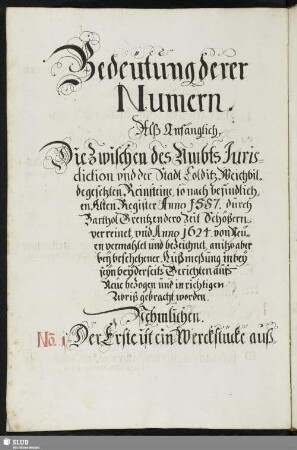 Bedeütung derer
Numern.
Alß Anfänglich.
Die Zwischen des Ambts Juris-
diction und der Stadt Colditz, Weichbil-
de gesetzten, Reinsteine, so nach befindlich,
en Alten Register Anno 1587. durch
Barthol Grentzendero Zeit Schößern
verreinet, und Anno 1624. von Neü-
en vermahlet und bezeichnet, anitzo aber
bey beschehener inbey
seyn beyderseits Gerichten aufs
Neue bezogen und in richtigen
Abriß gebracht worden.
Nehmlichen.
No. 1. Der Erste ist ein Werckstücke auß
SLUB